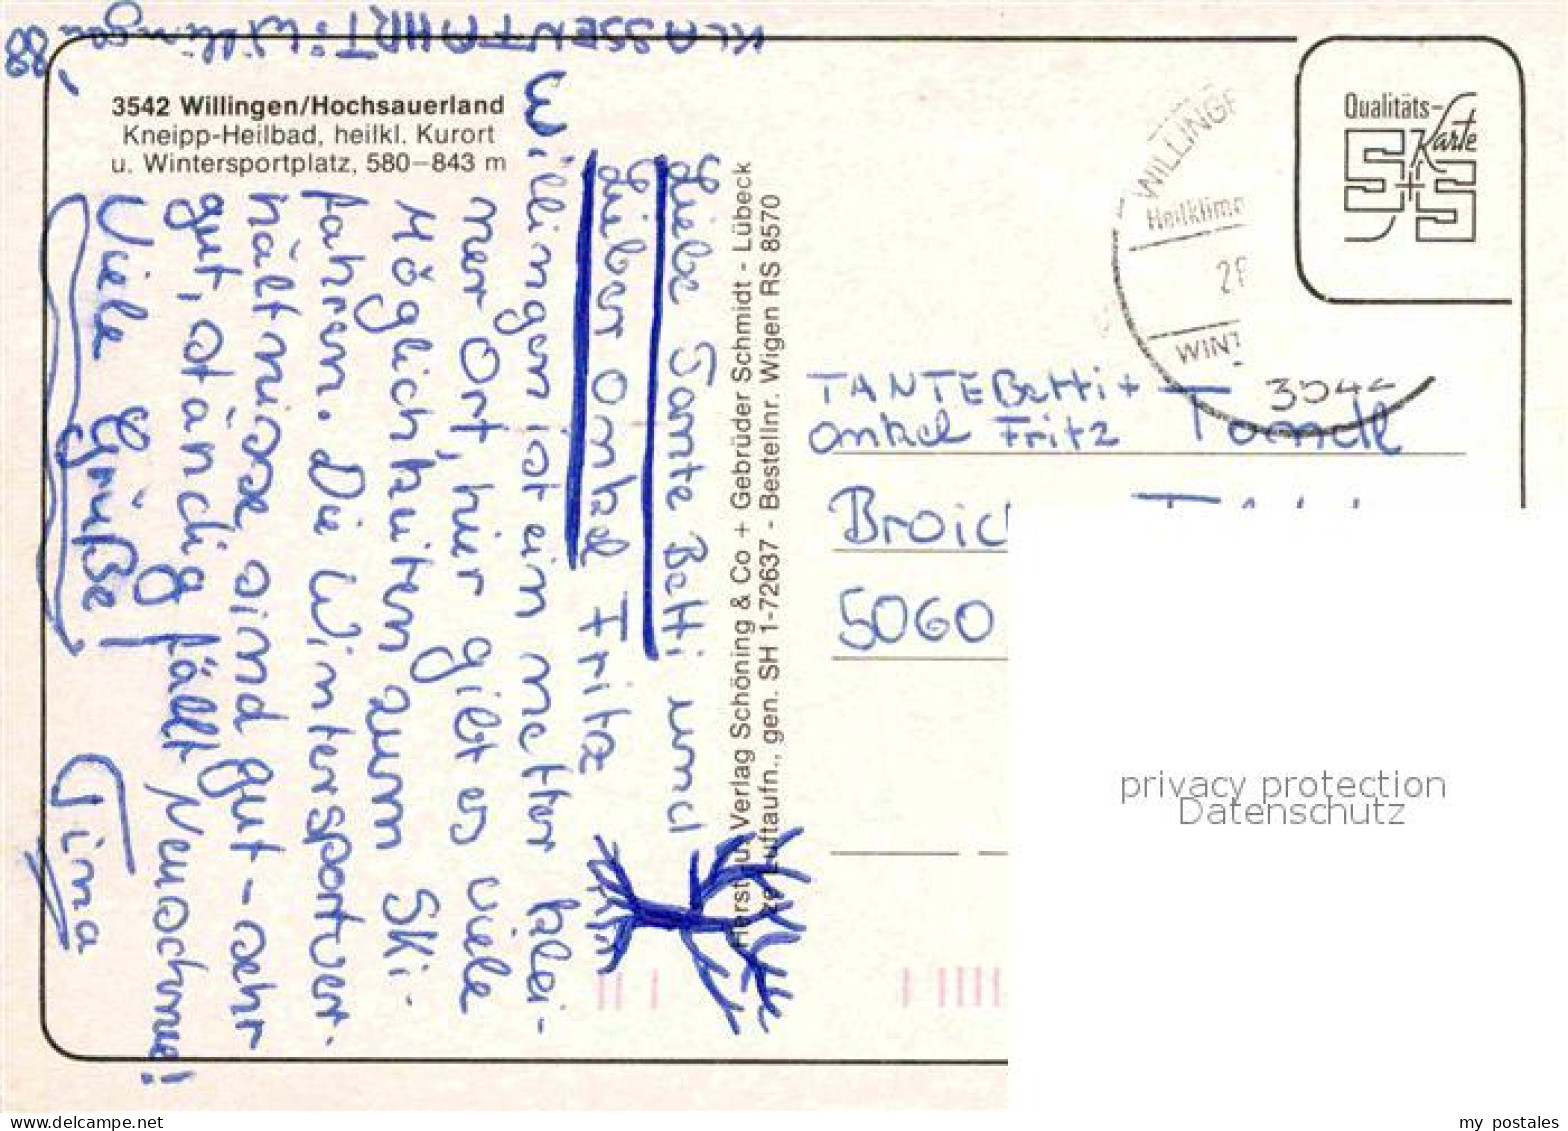 KLASSENFAHRT: Willingen '88
3542 Willingen/Hochsauerland
Kneipp-Heilbad, heilkl. Kurort
u. Wintersportplatz, 580–843 m
Liebe Tante Betti und
lieber Onkel Fritz
Willingen ist ein netter klei-
ner Ort, hier gibt es viele
Möglichkeiten zum Ski-
fahren. Die Wintersportver-
hältnisse sind gut - sehr
gut, ständig fällt Neuschnee!
Viele Grüße!
Tina
Herst. u. Verlag Schöning & Co + Gebrüder Schmidt - Lübeck
Luftaufn., gen. SH 1-72637 - Bestellnr. Wigen RS 8570
Qualitäts-
Karte
S+S
WILLINGE
Heilklima
WINT
3542
TANTE Betti +
Onkel Fritz
Broic
5060
privacy protection
Datenschutz
www.delcampe.net
my_postales